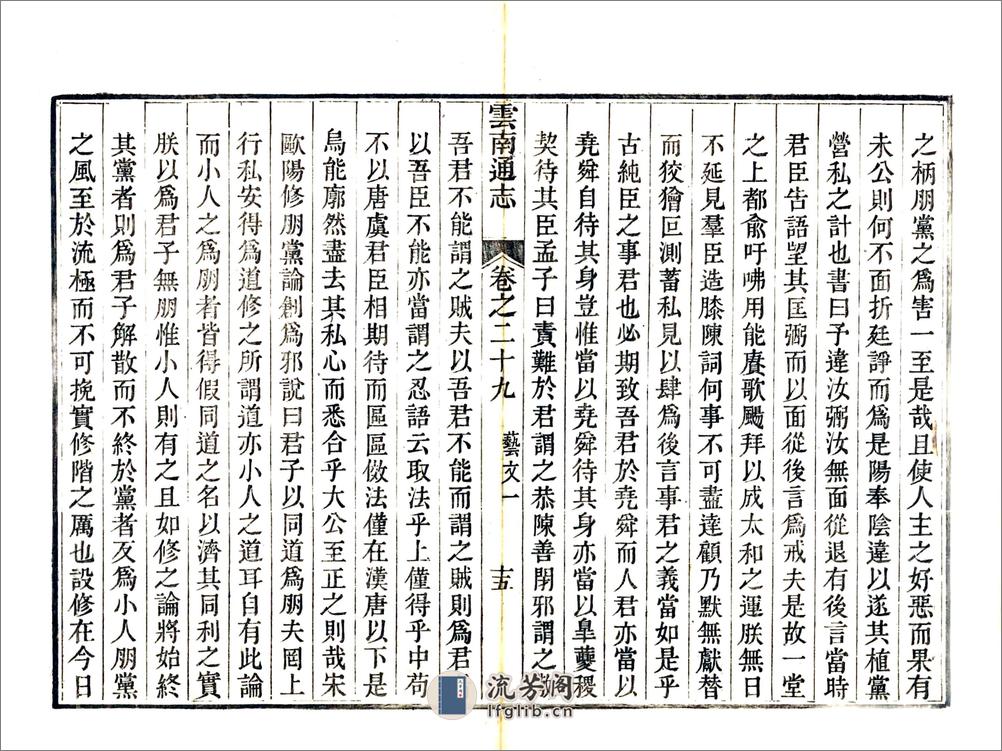 之柄朋黨之爲害一至是哉且使人主之好惡而果有
未公則何不面折廷諍而爲是陽奉陰違以遂其植黨
營私之計也書曰予違汝弼汝無面從退有後言當時
君臣告語望其匡弼而以面從後言爲戒夫是故一堂
之上都俞吁咈用能賡歌颺拜以成太和之運朕無日
不延見羣臣造膝陳詞何事不可盡達顧乃默無獻替
而狡獪叵測蓄私見以肆爲後言事君之義當如是乎
古純臣之事君也必期致吾君於堯舜而人君亦當以
堯舜自待其身豈惟當以堯舜待其身亦當以臯夔稷
契待其臣孟子曰責難於君謂之恭陳善閉邪謂之敬
雲南通志
卷之二十九
藝文一
十五
吾君不能謂之賊夫以吾君不能而謂之賊則爲君
以吾臣不能亦當謂之忍語云取法乎上僅得乎中苟
不以唐虞君臣相期待而區區倣法僅在漢唐以下是
烏能廓然盡去其私心而悉合乎大公至正之則哉宋
歐陽修朋黨論創爲邪說曰君子以同道爲朋夫罔上
行私安得爲道修之所謂道亦小人之道耳自有此論
而小人之爲朋者皆得假同道之名以濟其同利之實
朕以爲君子無朋惟小人則有之且如修之論將始終
其黨者則爲君子解散而不終於黨者反爲小人朋黨
之風至於流極而不可挽實修階之厲也設修在今日
流芳阁
lfglib.cn